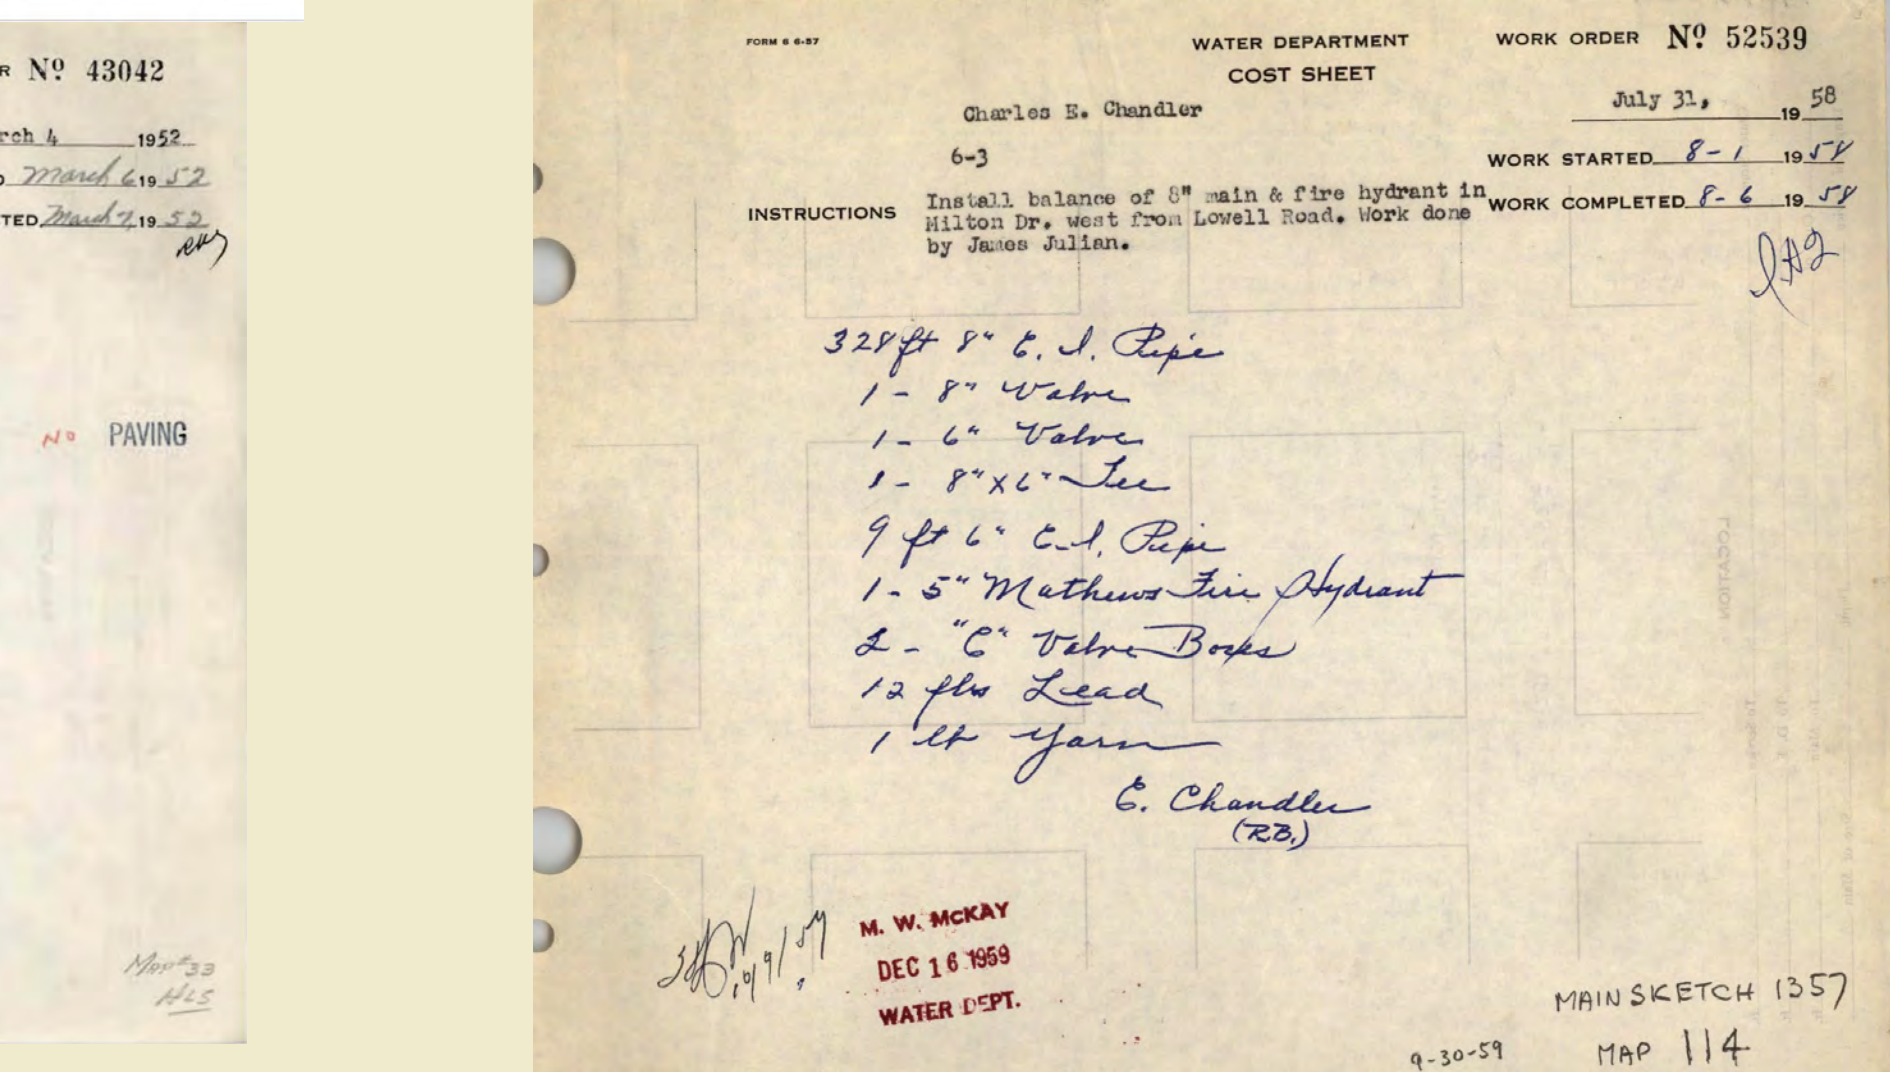 R Nº 43042
rch 4 1952
March 6 19 52
TED March 7, 19 52
NO PAVING
MAP #33
HLS
FORM 6 6-57
WATER DEPARTMENT
COST SHEET
WORK ORDER Nº 52539
Charles E. Chandler
July 31, 19 58
6-3
WORK STARTED 8-1 19 58
INSTRUCTIONS Install balance of 8" main & fire hydrant in
Milton Dr. west from Lowell Road. Work done
by James Julian.
WORK COMPLETED 8-6 19 58
328 ft 8" C.I. Pipe
1 - 8" Valve
1 - 6" Valve
1 - 8" X 6" Tee
9 ft 6" C.I. Pipe
1 - 5" Mathews Fire Hydrant
2 - "C" Valve Boxes
12 lbs Lead
1 lb Yarn
E. Chandler
(R.B.)
M. W. McKAY
DEC 16 1959
WATER DEPT.
MAIN SKETCH 1357
9-30-59
MAP 114
LOCATION